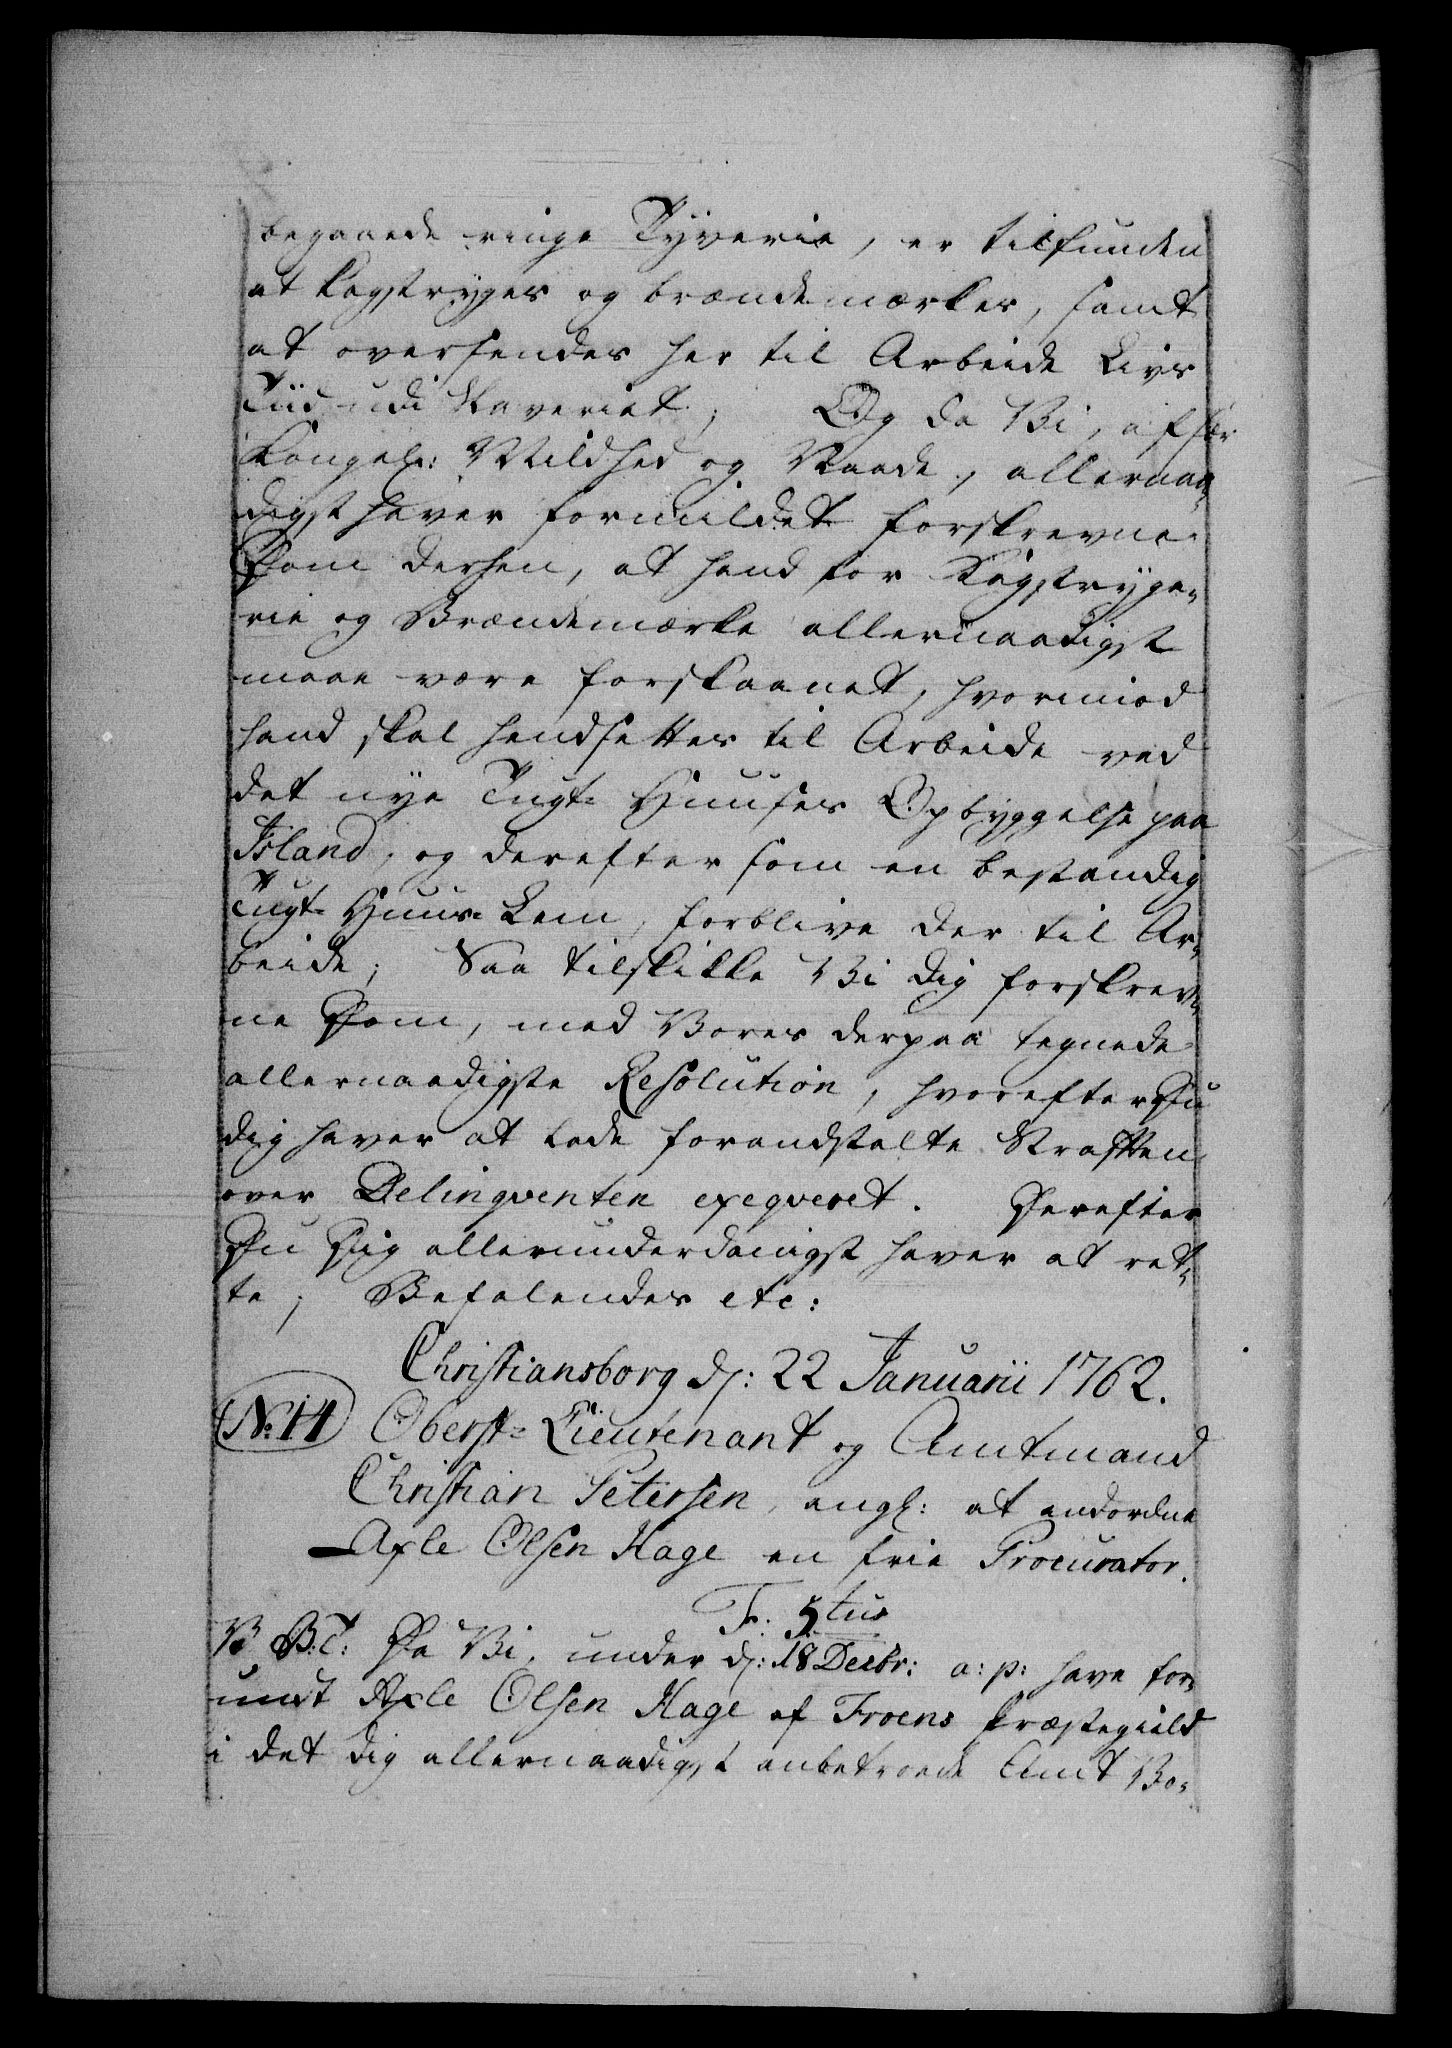 begaaede ringe Tyverie, er tilfunden
at kagstryges og brændemærkes, samt
at oversendes her til Arbeide Livs
Tiid udi Slaveriet; Og da Vi, af sær
Kongel: Mildhed og Naade, allernaa-
digst haver formildet forskrevne
Dom derhen, at hand for Kagstryge-
rie og Brændemærke allernaadigst
maae være forskaanet, hvorimod
hand skal hendsettes til Arbeide ved
det nye Tugt- Huuses Opbyggelse paa
Island, og derefter som en bestandig
Tugt- Huus- Lem, forblive der til Ar-
beide; Saa tilskikke Vi dig forskrev-
ne Dom, med Vores derpaa tegnede
allernaadigste Resolution, hvorefter Du
dig haver at lade foranstalte Straffen
over Delinqventen exeqveret. Derefter
Du Dig allerunderdanigst haver at ret-
te; Befalendes etc:
Christiansborg d: 22 Januarii 1762.
No: 14 Oberst- Lieutenant og Amtmand
Christian Petersen, angl: at andordne
Axle Olsen Hage en frie Procurator.
F. 5tus
V. G. T: Da Vi, under d: 18 Decbr: a: p: have for-
undt Axle Olsen Hage af Froens Præstegield
i det dig allernaadigst anbetroede Amt Be-